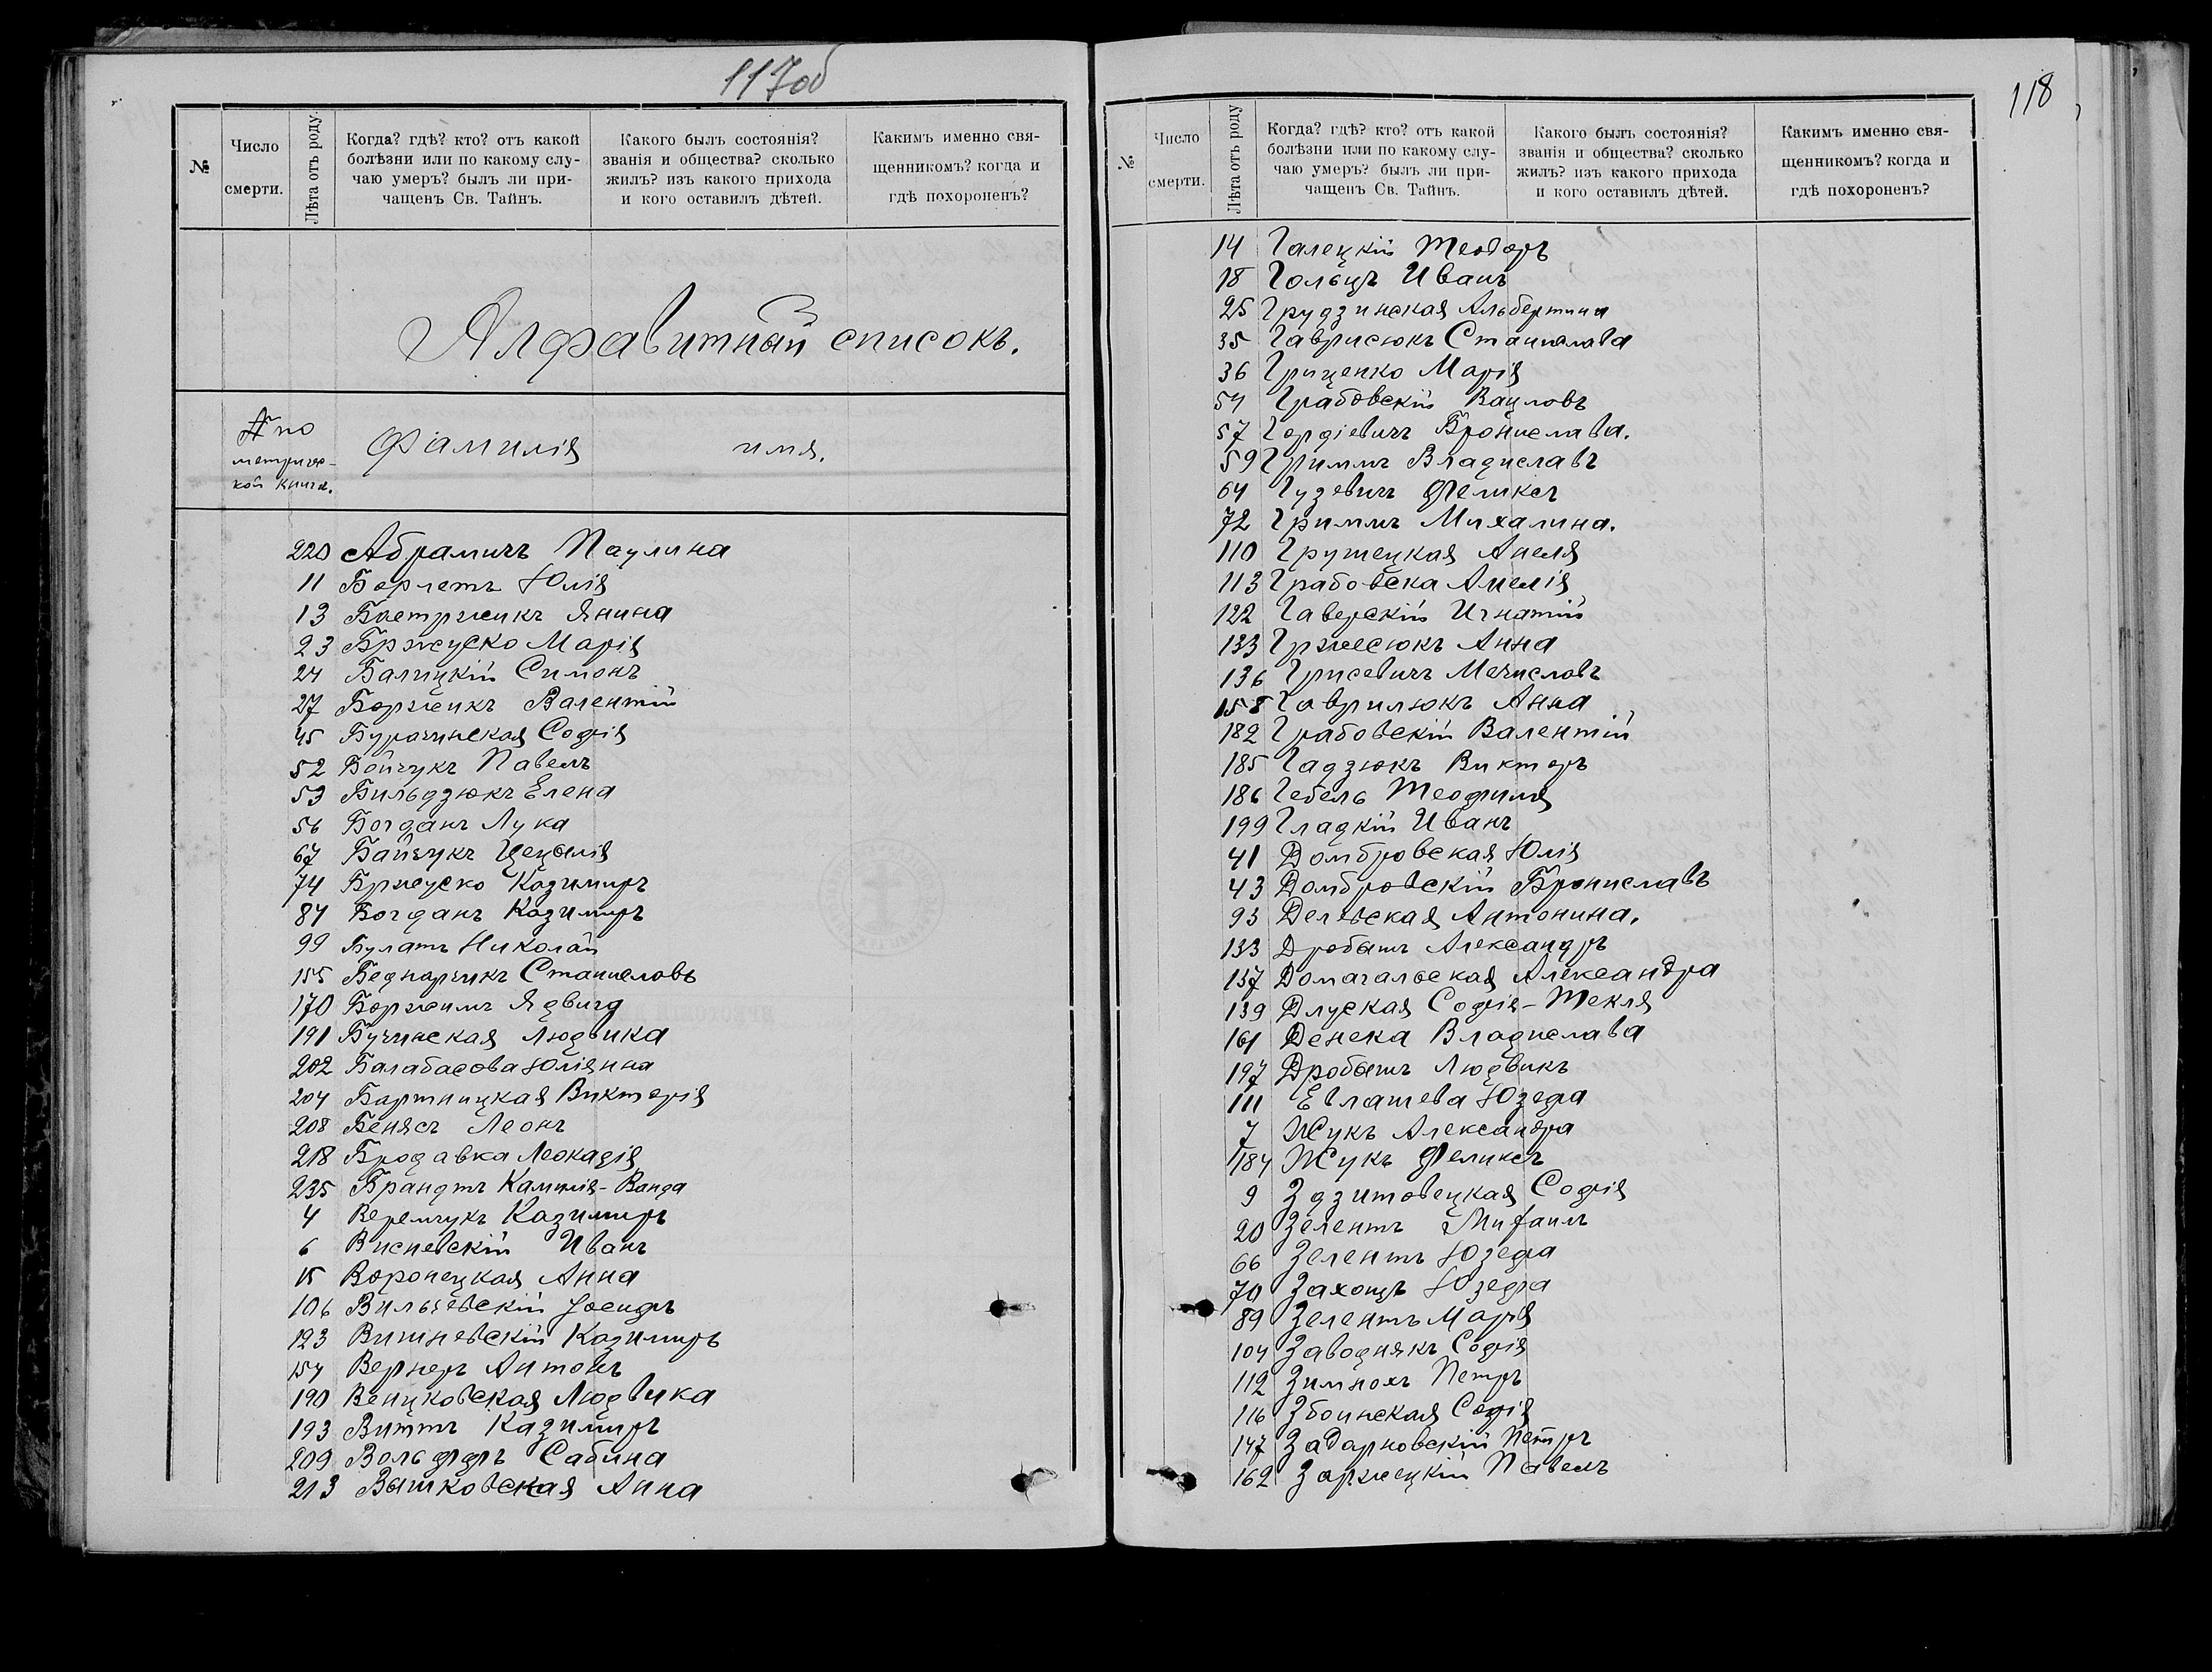 117об
№
Число
смерти.
Лѣта отъ роду.
Когда? гдѣ? кто? отъ какой
болѣзни или по какому слу-
чаю умеръ? былъ ли при-
чащенъ Св. Тайнъ.
Какого былъ состоянія?
званія и общества? сколько
жилъ? изъ какого прихода
и кого оставилъ дѣтей.
Какимъ именно свя-
щенникомъ? когда и
гдѣ похороненъ?
Алфавитный списокъ.
№ по
метричес-
кой книге.
Фамилія имя.
220 Абрамичъ Паулина
11 Борлетъ Юлія
13 Быстржикъ Янина
23 Бржеуско Марія
24 Балицкій Симонъ
27 Боржикъ Валентій
45 Бурачинская Софія
52 Бойчукъ Павелъ
53 Бильдзюкъ Елена
56 Богданъ Лука
67 Байчукъ Цецылія
74 Бржеуско Казимиръ
84 Богданъ Казимиръ
99 Булатъ Николай
155 Беднарчикъ Станиславъ
170 Боржимъ Ядвига
191 Бучинская Людвика
202 Балабасова Юліянна
204 Бартницкая Викторія
208 Бенясъ Леонъ
218 Бродавка Леокадія
235 Брандтъ Камилія-Ванда
4 Веремчукъ Казимиръ
6 Висневскій Иванъ
15 Воронецкая Анна
106 Вильчевскій Іосифъ
123 Вишневскій Казимиръ
154 Вернеръ Антонъ
190 Венцковская Людвика
193 Виттъ Казимиръ
209 Вольффъ Сабина
213 Вышковская Анна
118
№
Число
смерти.
Лѣта отъ роду
Когда? гдѣ? кто? отъ какой
болѣзни или по какому слу-
чаю умеръ? былъ ли при-
чащенъ Св. Тайнъ.
Какого былъ состоянія?
званія и общества? сколько
жилъ? изъ какого прихода
и кого оставилъ дѣтей.
Какимъ именно свя-
щенникомъ? когда и
гдѣ похороненъ?
14 Галецкій Теодоръ
18 Гольцъ Иванъ
25 Грудзинская Альбертина
35 Гаврисюкъ Станислава
36 Гриценко Марія
54 Грабовскій Вацловъ
57 Гордіевичъ Бронислава.
59 Гриммъ Владиславъ
64 Гузевичъ Феликсъ
72 Гриммъ Михалина.
110 Грушецкая Анеля
113 Грабовска Амелія
122 Гаверскій Игнатій
133 Гржесюкъ Анна
136 Грисевичъ Мечиславъ
158 Гаврилюкъ Анна
182 Грабовскій Валентій
185 Гадзюкъ Викторъ
186 Гебель Теофиля
199 Гладкій Иванъ
41 Домбровская Юлія
43 Домбровскій Брониславъ
93 Антонина.
133 Дробышъ Александръ
137 Домагальская Александра
139 Длуская Софія-Текля
161 Денека Владислава
197 Дробышъ Людвикъ
111 Евлашева Юзефа
7 Жукъ Александра
184 Жукъ Феликсъ
9 Здзитовецкая Софія
20 Зелентъ Михаилъ
66 Зелентъ Юзефа
70 Захоцъ Юзефа
89 Зелентъ Марія
104 Заводнякъ Софія
112 Зимнохъ Петръ
116 Збоинская Софія
147 Задарновскій Петръ
162 Заржецкій Павелъ